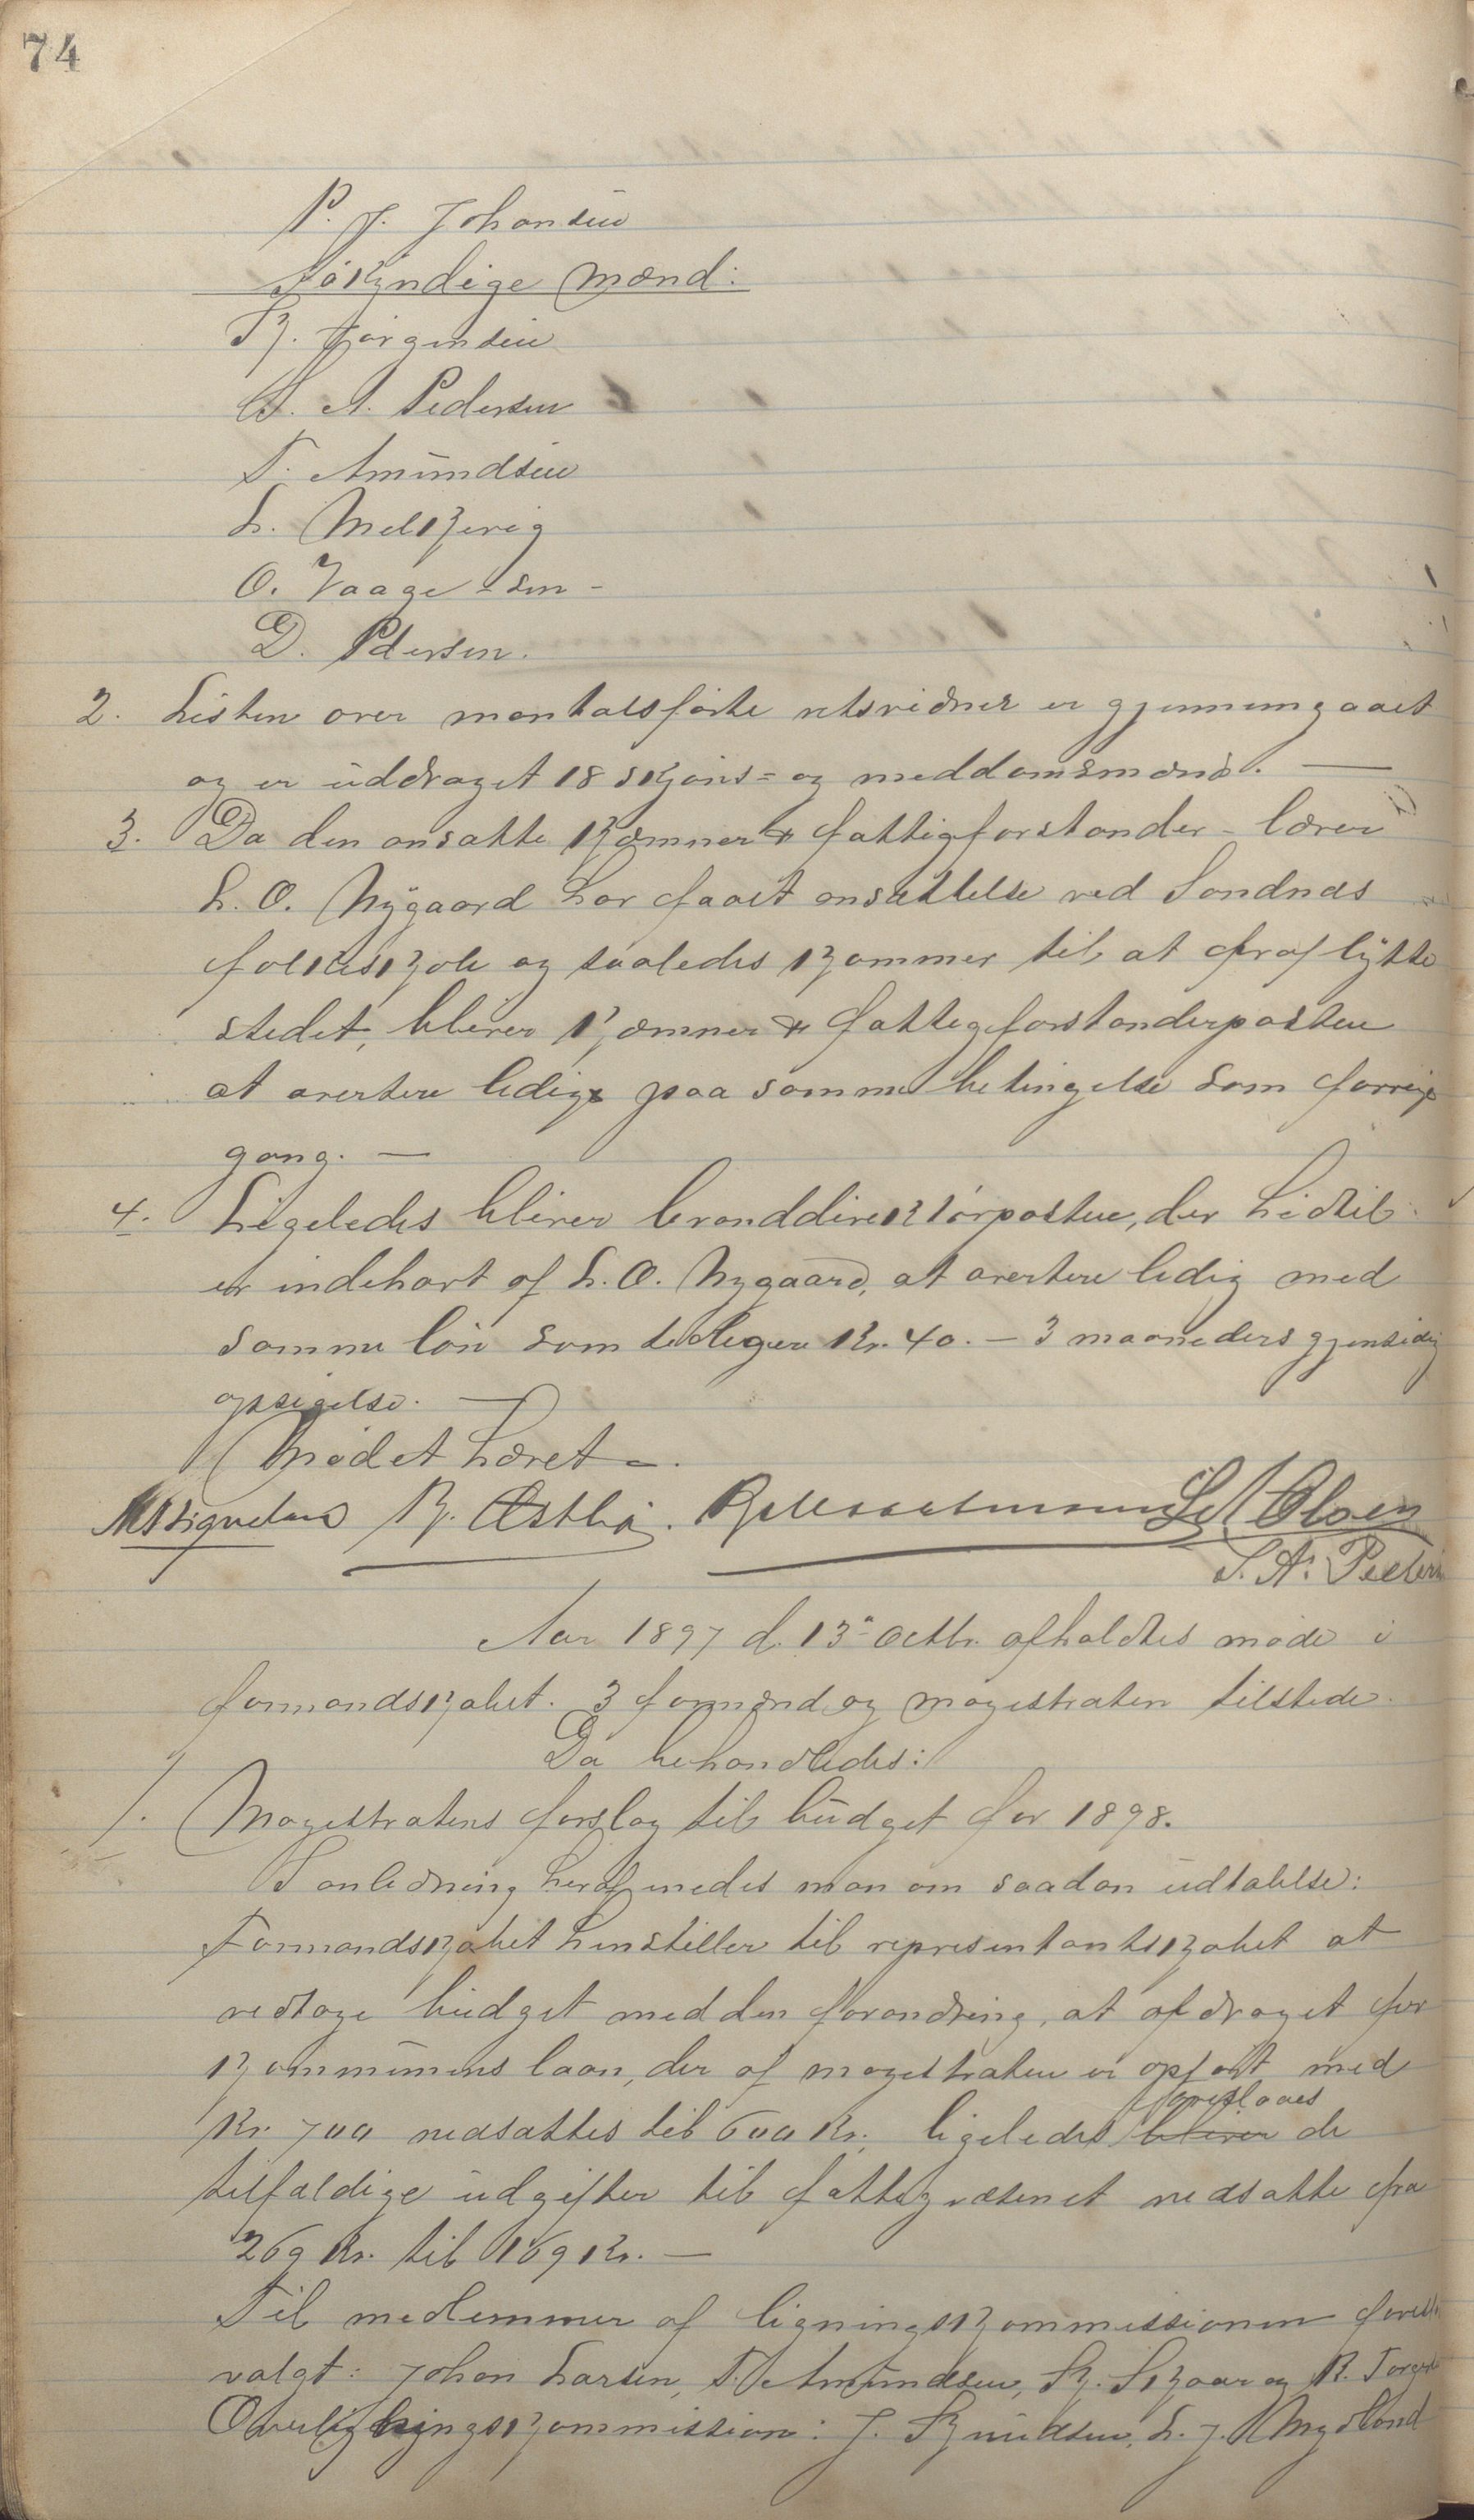 74
P. J. Johansen
Søkyndige mænd:
K. Jørgensen
S. A. Pedersen
T. Amundsen
L. Melkevig
O. Vaage - sen -
D. Pdersen.
2. Listen over mantalsførte retsvidner er gjennemgaaet
og er uddraget 18 skjøns= og meddomsmænd. —
3. Da den ansatte kæmner & fattigforstander - lærer
L. O. Nygaard har faaet ansættelse ved Sandnæs
folkeskole og saaledes kommer til at fraflytte
stedet, bliver kæmner & fattigforstanderposten
at avertere ledige paa samme betingelse som forrige
gang. —
4. Ligeledes bliver branddirektørposten, der hidtil
er indehavt af L. O. Nygaard, at avertere ledig med
samme løn som tidligere Kr. 40. — 3 maaneders gjensidig
opsigelse. —
Mødet hævet —.
K. Østbø. L. A. Olsen
S. A. Peders
Aar 1897 d. 13 octbr. afholdtes møde i
formandskabet. 3 formænd og magistraten tilstede.
Da behandledes:
1. Magistratens forslag til budget for 1898.
I anledning heraf enedes man om saadan udtalelse:
Formandskabet henstiller til representantskabet at
vedtage budget med den forandring, at afdraget for
kommunens laan, der af magistraten er opført med
foreslaaes
Kr. 700 nedsattes til 600 Kr., ligeledes bliver de
tilfældige udgifter til fattigvæsenet nedsatte fra
269 Kr. til 169 Kr. —
Til medlemmer af ligningskommissionen
valgt: Johan Larsen, T. Amundsen, K. Skaar og
Overligningskommission: J. Knudsen, L. J. Mydland